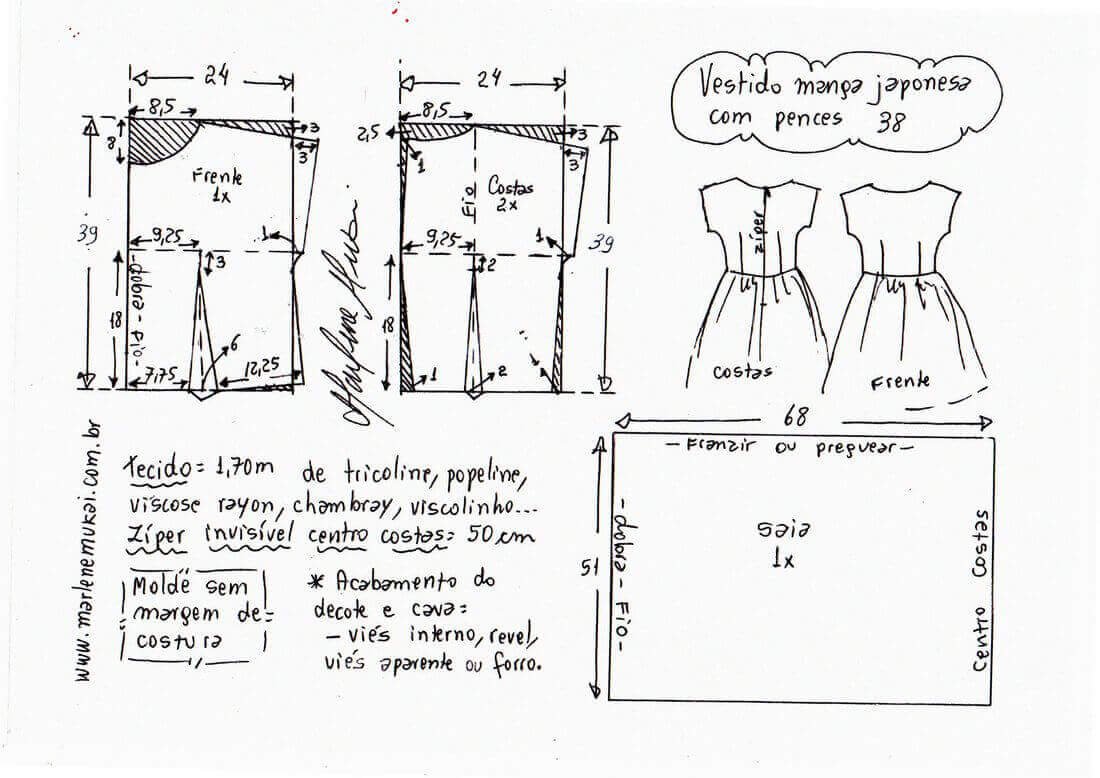 Vestido manga japonesa
com pences 38
24
8,5
8
3
3
Frente
1x
39
9,25
1
3
18
-dobra-Fio-
6
7,75
12,25
24
8,5
2,5
3
1
3
Fio
Costas
2x
39
9,25
1
2
18
1
2
zíper
costas
Frente
68
-Franzir ou preguear-
-dobra-Fio-
saia
1x
51
Centro Costas
www.marlenemukai.com.br
tecido = 1,70m de tricoline, popeline,
viscose rayon, chambray, viscolinho...
Zíper invisível centro costas= 50cm
Molde sem
margem de
costura
* Acabamento do
decote e cava=
- viés interno, revel,
viés aparente ou forro.